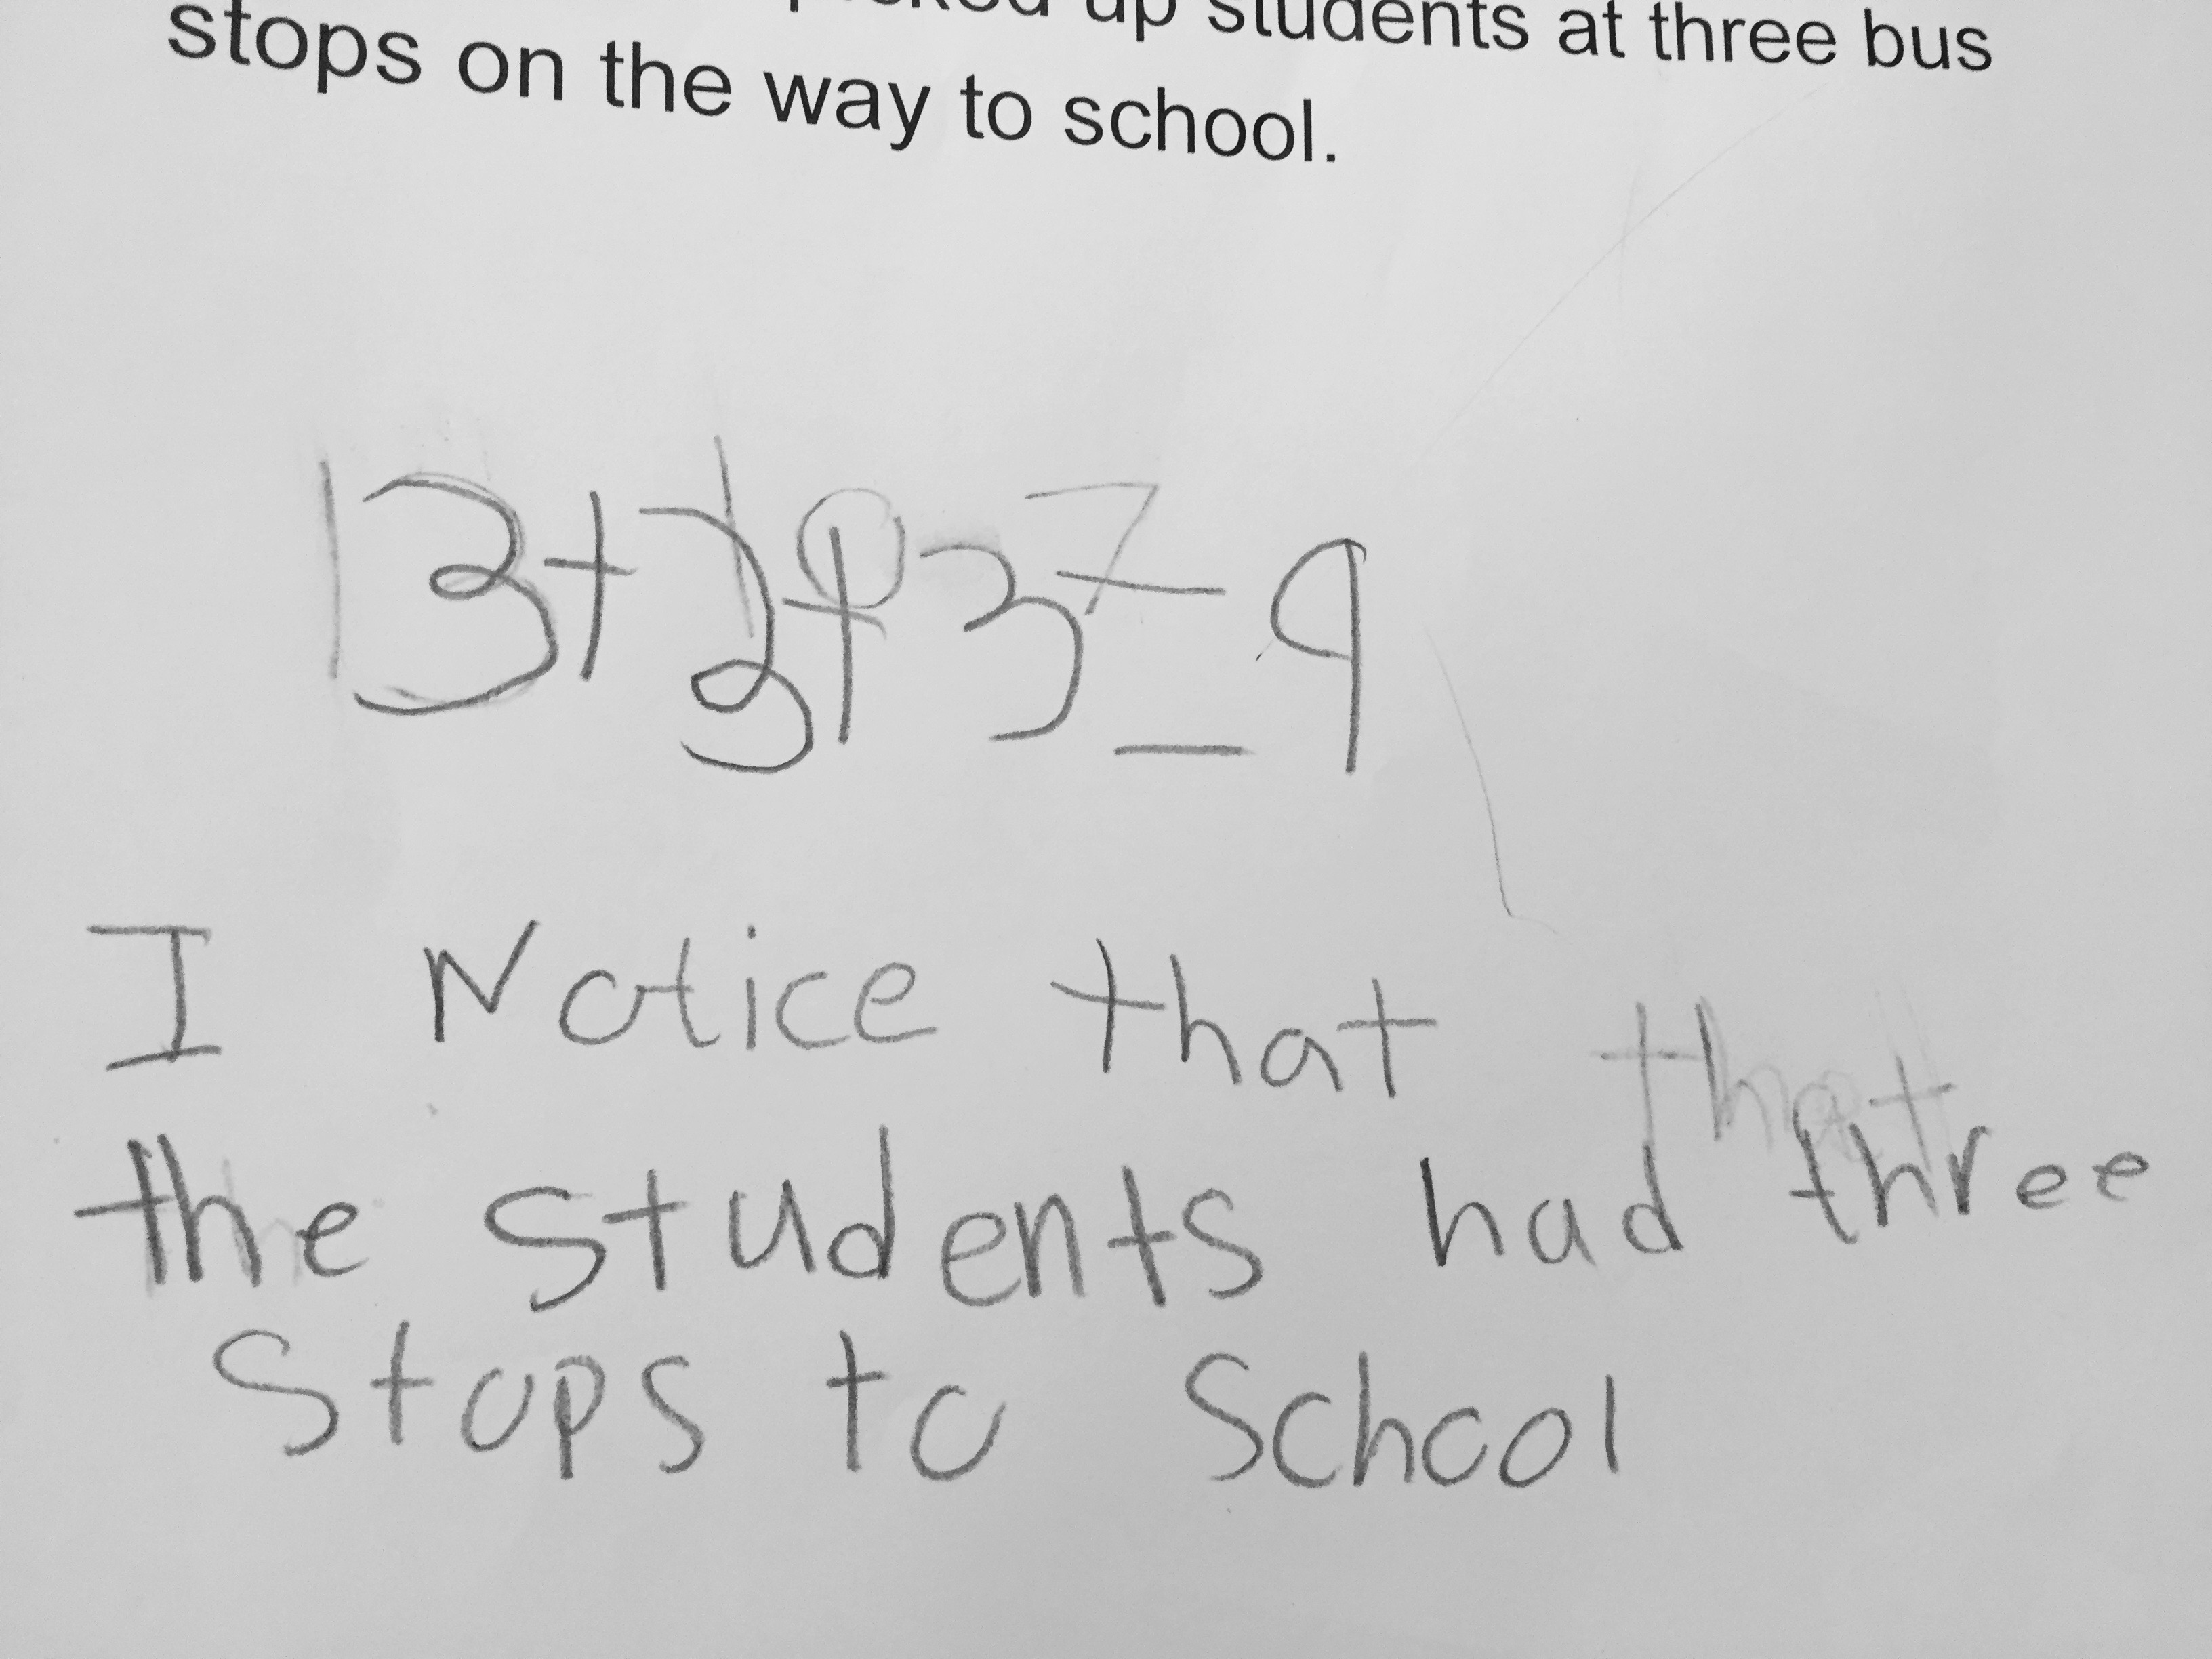 up students at three bus
stops on the way to school.
3+3+3=9
I Notice that
the students had three
stops to school